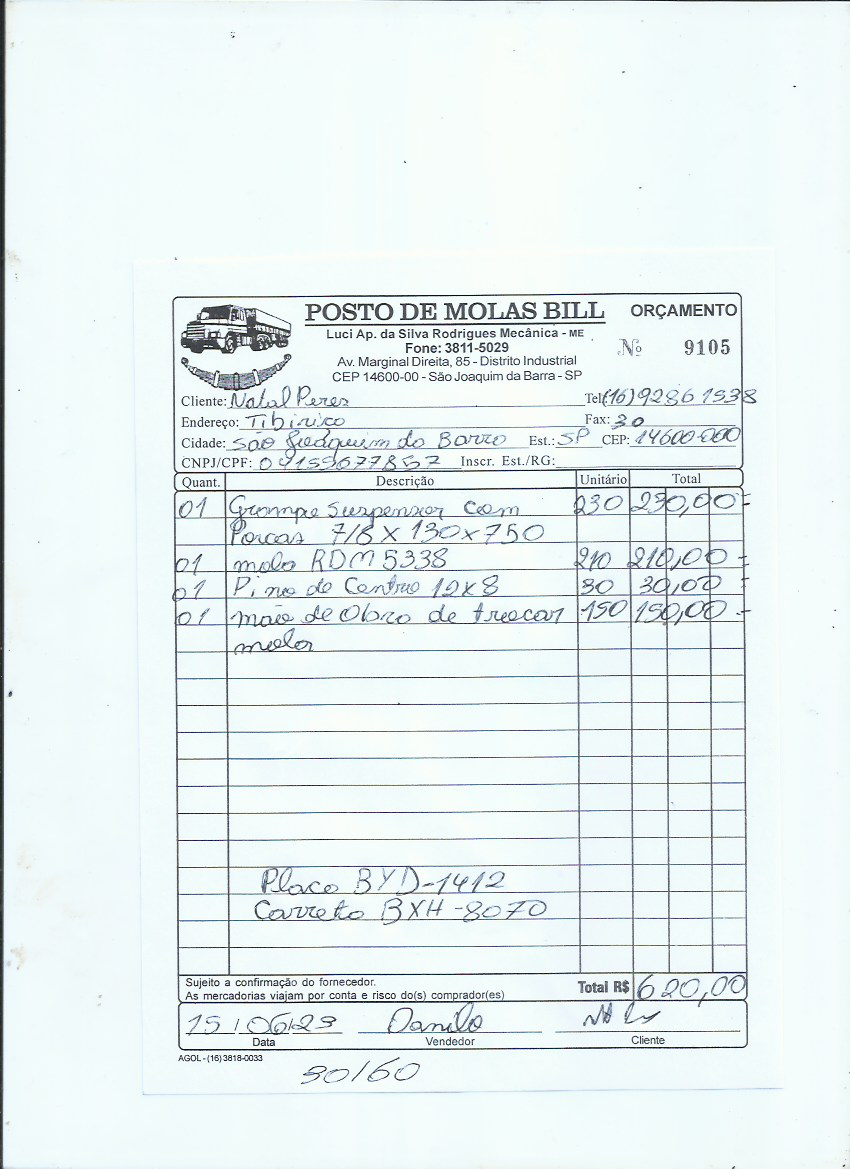 POSTO DE MOLAS BILL ORÇAMENTO
Luci Ap. da Silva Rodrigues Mecânica - ME
Fone: 3811-5029
Nº 9105
Av. Marginal Direita, 85 - Distrito Industrial
CEP 14600-00 - São Joaquim da Barra - SP
Cliente: Natal Peres Tel: (16) 9286 1538
Endereço: Tibiriço Fax: 30
Cidade: São Joaquim do Barro Est.: SP CEP: 14600-000
CNPJ/CPF: 04159677857 Inscr. Est./RG:
Quant. Descrição Unitário Total
01 Grampe Suspensor com 230 230,00
Porcas 7/8 X 130 x 750
01 molo RDM 5338 210 210,00
01 Pino de Centro 12x8 30 30,00
01 mão de Obro de trocar 150 150,00
molor
Placo BYD-1412
Carreto BXH-8070
Sujeito a confirmação do fornecedor.
As mercadorias viajam por conta e risco do(s) comprador(es)
Total R$ 620,00
15/06/23 Danilo
Data Vendedor Cliente
AGOL - (16) 3818-0033
30/60